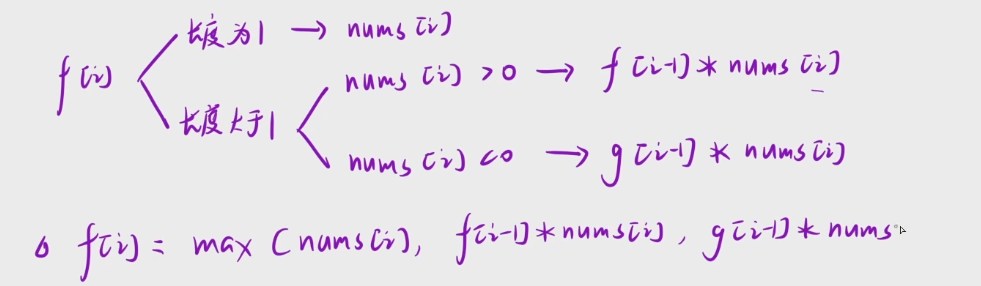 长度为1 → nums[i]
f[i]
nums[i] >0 → f[i-1] * nums[i]
长度大于1
nums[i] <0 → g[i-1] * nums[i]
f[i] = max (nums[i], f[i-1] * nums[i], g[i-1] * nums